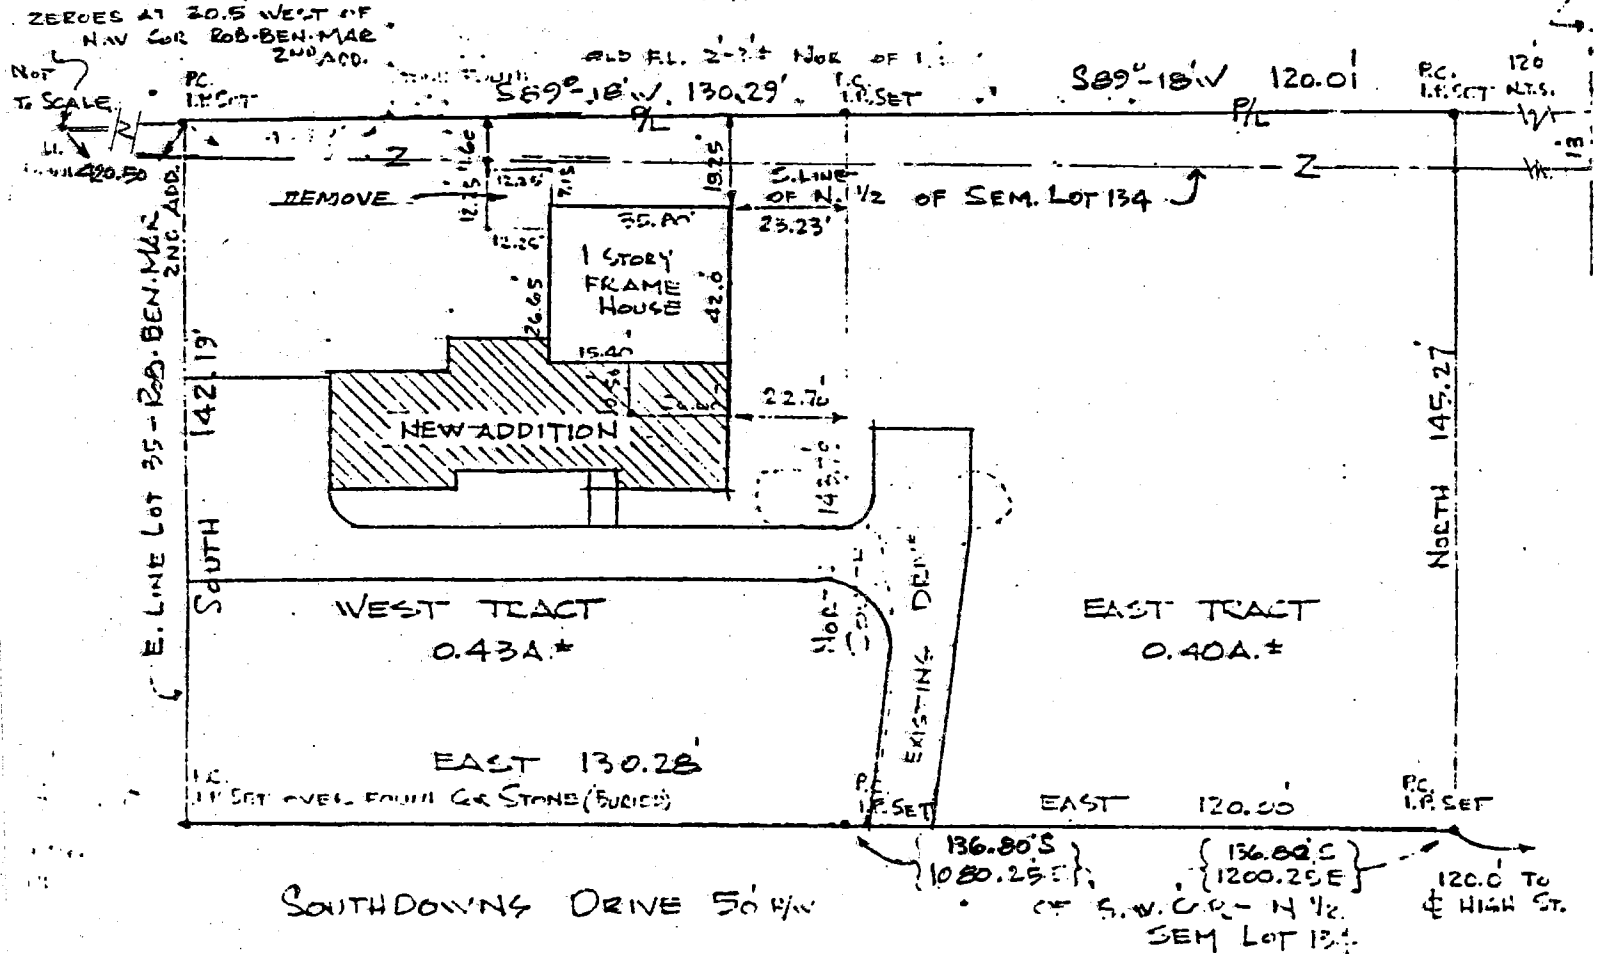 ZEROES AT 20.5 WEST OF
N.W COR ROB-BEN-MAR
2ND ADD.
NOT
TO SCALE
P.C.
I.P. SET
OLD F.L. NOR OF
S89°-18'W 130.29'
P/L
I.P. SET
S89°-18'W 120.01'
P/L
P.C.
I.P. SET
120'
N.T.S.
13
420.50
Z
Z
REMOVE
12.25'
7.15
12.25
12.25'
19.25
S. LINE
OF N. 1/2 OF SEM. LOT 134
35.80'
23.23'
1 STORY
FRAME
HOUSE
26.65
42.0
15.40
22.70'
NEW ADDITION
E. LINE LOT 35 - ROB-BEN-MAR
2ND ADD.
SOUTH 142.19'
NORTH 145.27'
WEST TRACT
0.43A.±
EXISTING DRIVE
EAST TRACT
0.40A.±
EAST 130.28'
I.P. SET OVER FOUND COR STONE (BURIED)
I.P. SET
EAST 120.00'
P.C.
I.P. SET
136.80'S
1080.25'E
136.80'S
1200.25E
OF S.W. COR - N 1/2
SEM LOT 134
120.0' TO
℄ HIGH ST.
SOUTHDOWNS DRIVE 50' R/W